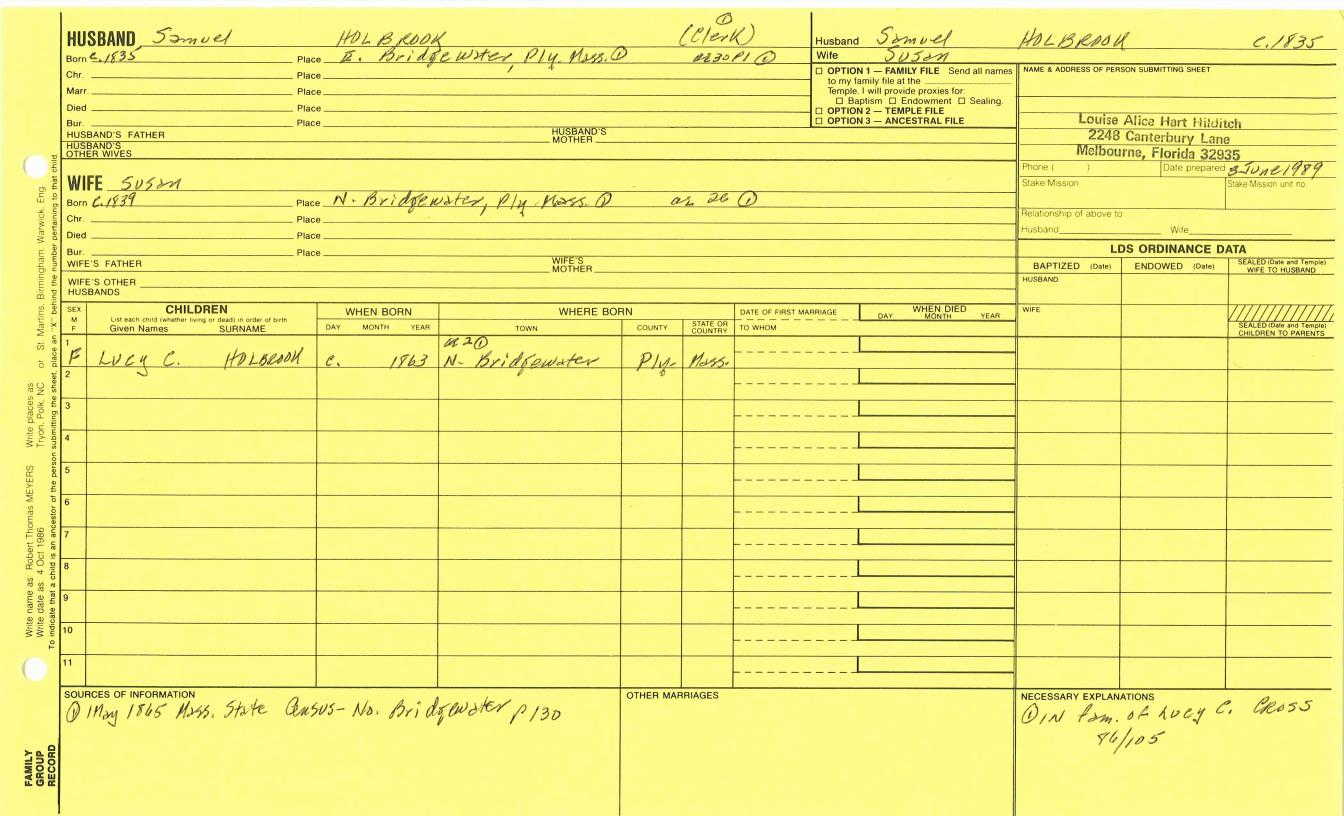 HUSBAND Samuel HOLBROOK (Clerk) ①
Born c.1835 Place E. Bridgewater, Ply. Mass. ①
Chr. Place
Marr. Place
Died Place
Bur. Place
HUSBAND'S FATHER HUSBAND'S MOTHER
HUSBAND'S OTHER WIVES
WIFE Susan
Born c.1839 Place N. Bridgewater, Ply. Mass. ① ae 26 ①
Chr. Place
Died Place
Bur. Place
WIFE'S FATHER WIFE'S MOTHER
WIFE'S OTHER HUSBANDS
Husband Samuel HOLBROOK c.1835
Wife Susan
☐ OPTION 1 — FAMILY FILE Send all names
to my family file at the
Temple. I will provide proxies for:
☐ Baptism ☐ Endowment ☐ Sealing.
☐ OPTION 2 — TEMPLE FILE
☐ OPTION 3 — ANCESTRAL FILE
NAME & ADDRESS OF PERSON SUBMITTING SHEET
Louise Alice Hart Hilditch
2248 Canterbury Lane
Melbourne, Florida 32935
Phone ( ) Date prepared 3 June 1989
Stake Mission Stake Mission unit no.
Relationship of above to
Husband Wife
LDS ORDINANCE DATA
BAPTIZED (Date) ENDOWED (Date) SEALED (Date and Temple) WIFE TO HUSBAND
HUSBAND
WIFE
SEALED (Date and Temple) CHILDREN TO PARENTS
SEX M F
CHILDREN
List each child (whether living or dead) in order of birth
Given Names SURNAME
WHEN BORN
DAY MONTH YEAR
WHERE BORN
TOWN COUNTY STATE OR COUNTRY
DATE OF FIRST MARRIAGE
TO WHOM
WHEN DIED
DAY MONTH YEAR
1 ae 2 ①
F Lucy C. HOLBROOK c. 1863 N. Bridgewater Ply. Mass.
2
3
4
5
6
7
8
9
10
11
SOURCES OF INFORMATION
① 1 May 1865 Mass. State Census - No. Bridgewater p 130
OTHER MARRIAGES
NECESSARY EXPLANATIONS
① IN fam. of Lucy C. CROSS
76/105
FAMILY GROUP RECORD
Write name as Robert Thomas MEYERS Write places as Tryon, Polk, NC or St. Martins, Birmingham, Warwick, Eng.
Write date as 4 Oct 1986
To indicate that a child is an ancestor of the person submitting the sheet, place an "X" behind the number pertaining to that child